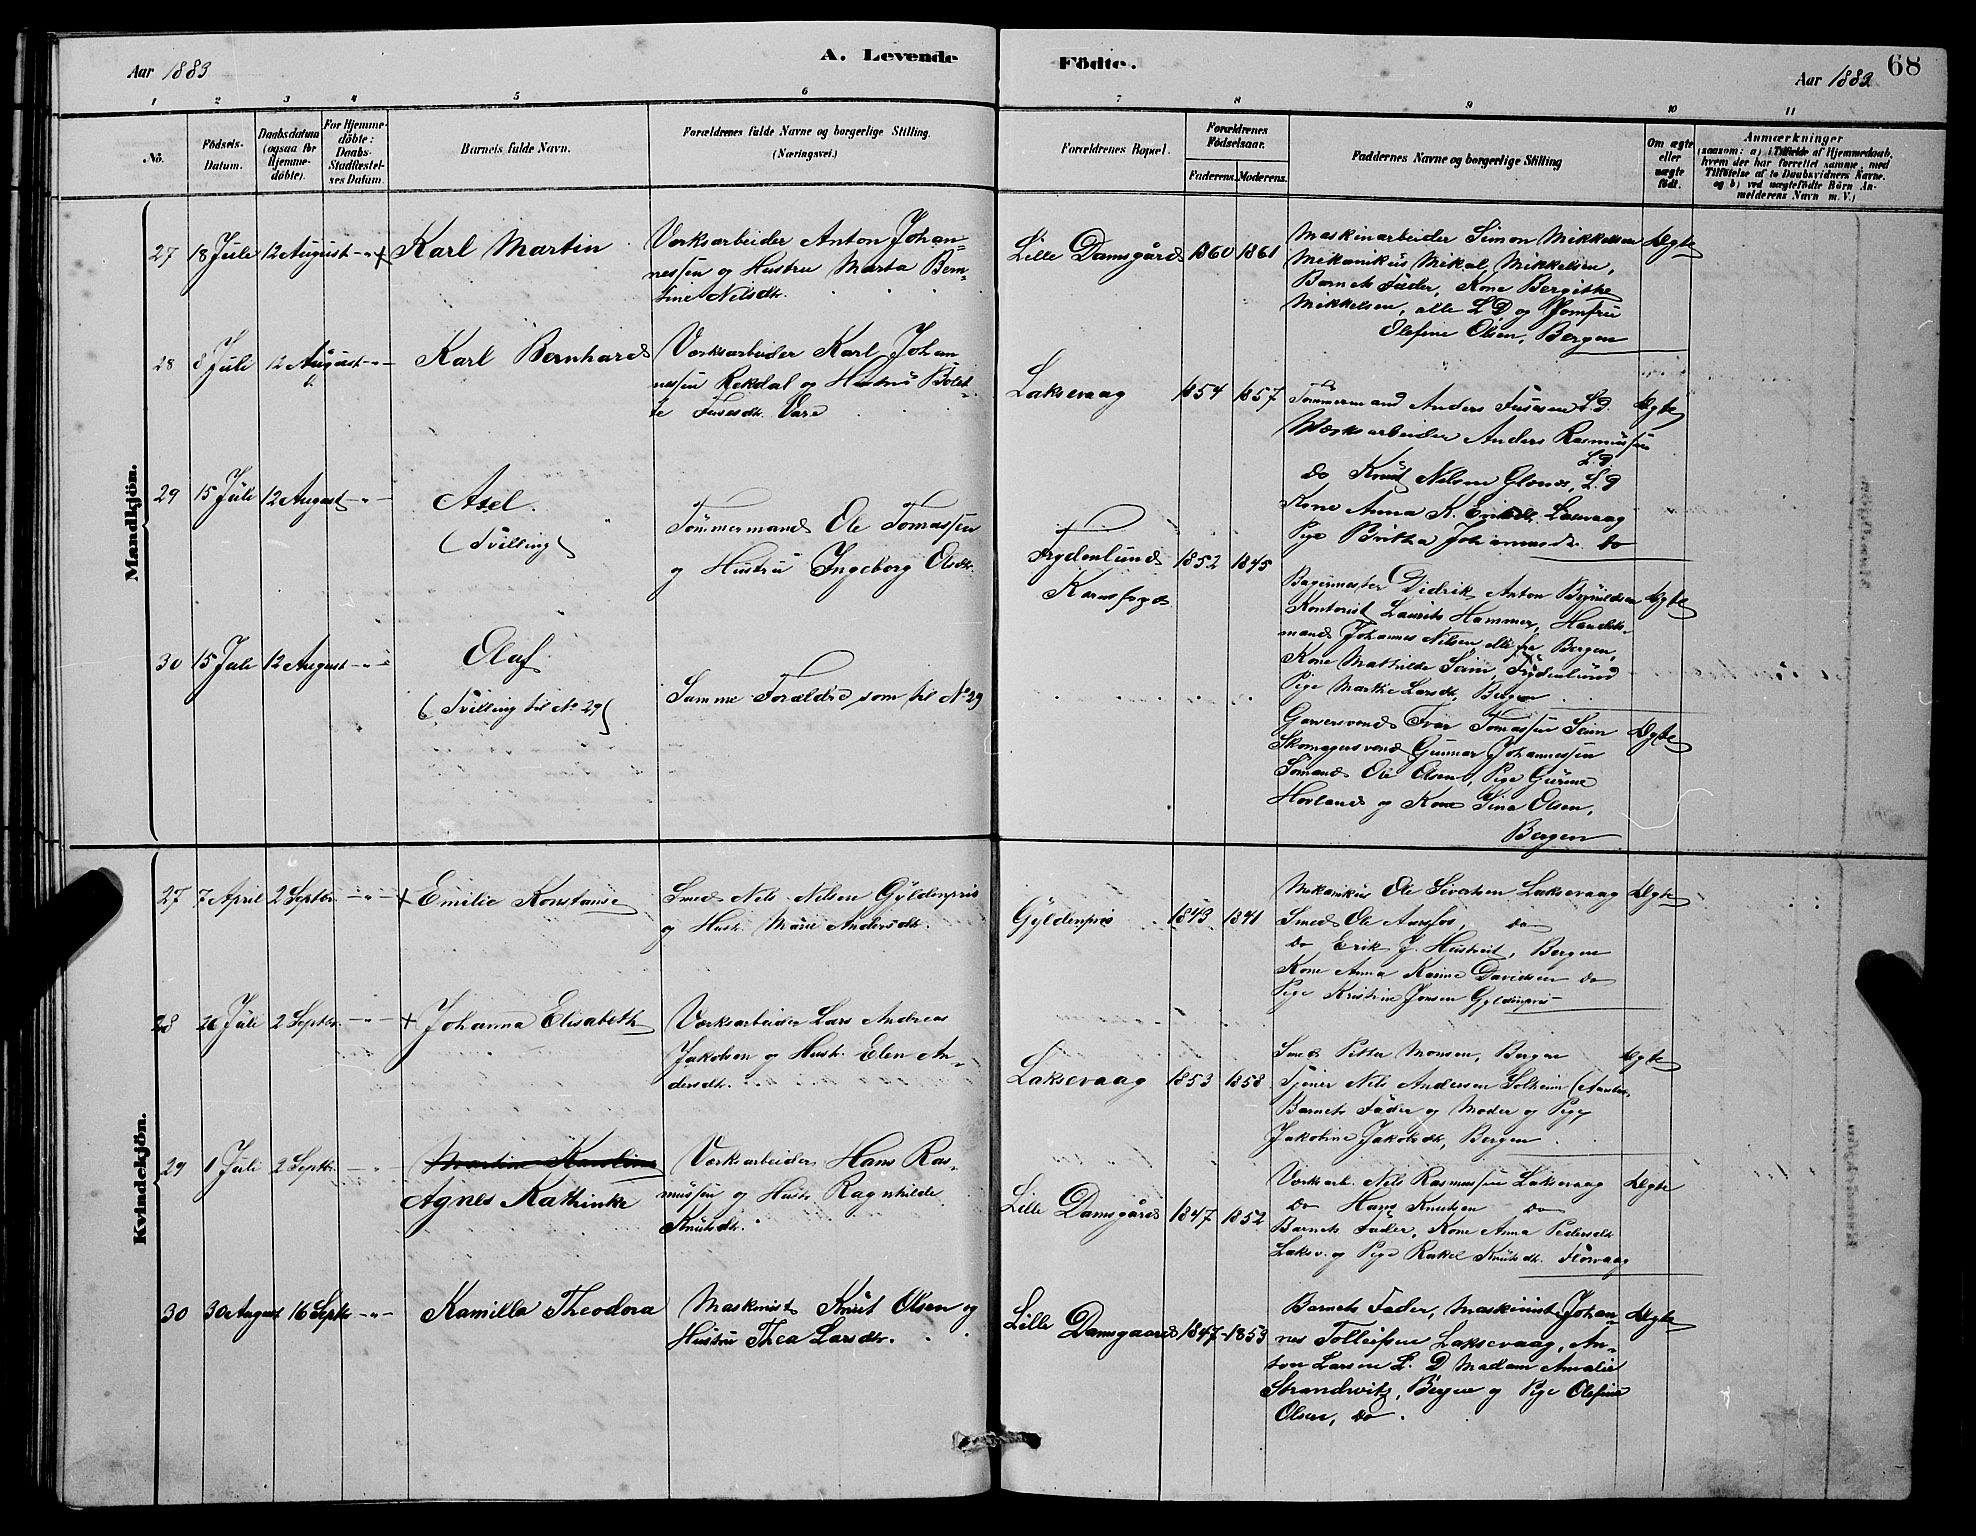 Aar 1883
A. Levende
Födte.
Aar 1883
68
1 2 3 4 5 6 7 8 9 10 11
No.
Födsels-
Datum.
Daabsdatum
(ogsaa for
Hjemme-
döbte).
For Hjemme-
döbte:
Daabs-
Stadfæstel-
ses Datum.
Barnets fulde Navn.
Forældrenes fulde Navne og borgerlige Stilling.
(Næringsvei.)
Forældrenes Bopæl.
Forældrenes
Födselsaar.
Faderens. Moderens.
Faddernes Navne og borgerlige Stilling
Om ægte
eller
uægte
födt.
Anmærkninger
(saasom: a) i Tilfælde af Hjemmedaab,
hvem der har forrettet samme, med
Tilföielse af to Daabsvidners Navne.
og b) ved uægtefödte Börn An-
melderens Navn m. V.)
Mandkjön.
27 18 Juli 12 August -"- + Karl Martin
Værksarbeider Anton Johan-
nessen og Hustru Marta Bern-
tine Nilsdtr.
Lille Damsgård 1860 1861
Maskinarbeider Simon Mikkelsen
Mekanikus Mikal Mikkelsen,
Barnets Fader, Kone Bergitte
Mikkelsen, alle L D og Jomfru
Olefine Olsen, Bergen
Ægte
28 8 Juli 12 August -"- Karl Bernhard
Værksarbeider Karl Johan-
nessen Rekdal og Hustru Bolet-
te Fusesdtr. Vare
Laksevaag 1854 1857
Tömmermand Anders Fusesen L D.
Værksarbeider Anders Rasmussen
L. D
do Knut Nilsen L. D
Kone Anna K. Laxevaag
Pige Britha Johannesdtr. do
Ægte
29 15 Juli 12 August -"- Axel.
(Tvilling)
Tømmermand Ole Tomassen
og Hustru Ingeborg Olsdtr.
Frydenlund 1852 1845
Bagermester Didrik Anton
Kontorist Laurits Hammer, Handels-
mand Johannes Nilsen alle fra Bergen,
Kone Mathilde Seim, Frydenlund
Pige Marthe Larsdtr, Bergen
Ægte
30 15 Juli 12 August -"- Olaf
(Tvilling til No 29)
Samme Forældre som til No 29
Garversvend Ivar Tomassen Seim
Skomagersvend Gunnar Johannessen
Sømand Ole Olsen, Pige Gurine
Hovland og Kone Sina Olsen,
Bergen
Ægte
Kvindekjön.
27 7 April 2 Septbr. -"- + Emilie Konstanse
Smed Nels Nelsen Gyldenpris
og Hustr. Marie Andersdtr.
Gyldenpris 1843 1841
Mekanikus Ole Sivertsen Laksevaag
Smed Ole Aarsfos, do
do Erik J. Hustveit, Bergen
Kone Anna Karine Davidsen do
Pige Kristine Jonsen Gyldenpris
Ægte
28 26 Juli 2 Septbr. -"- + Johanna Elisabeth
Værksarbeider Lars Andreas
Jakobsen og Hustr. Elen An-
dersdtr.
Laksevaag 1853 1858
Smed Petter Monsen, Bergen
Tjener Nels Andersen Solheim
Barnets Fader og Moder og Pige
Jakobine Jakobsdtr, Bergen
Ægte
29 1 Juli 2 Septbr. -"- Martine Karoline
Agnes Kathinke
Værksarbeider Hans Ras-
mussen og Hustr Ragnhilde
Knutsdtr.
Lille Damsgård 1847 1852
Værksarb. Nels Rasmussen Laksevaag
do Hans Knutsen do
Barnets Fader, Kone Anna Pedersdtr
Laksv. og Pige Rakel Knutsdtr. Florvaag
Ægte
30 30 August 16 Septbr -"- Kamilla Theodora
Maskinist Knut Olsen og
Hustru Thea Larsdtr.
Lille Damsgaard 1847 1853
Barnets Fader, Maskinist Johan-
nes Tolleifsen Laksevaag, An-
ton Larsen L. D Madam Amalie
Strandvitz, Bergen og Pige Olefine
Olsen, do.
Ægte